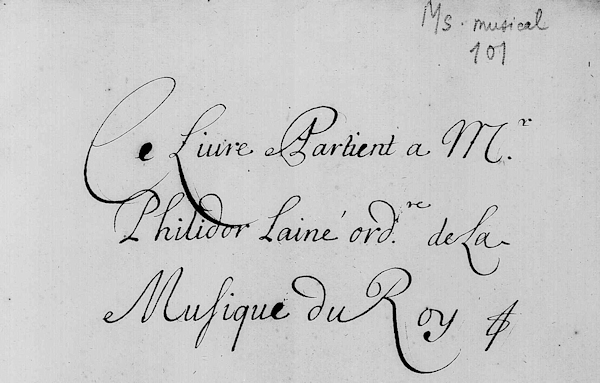 Ms. musical
101
Ce Liure Partient a M.r
Philidor Lainé ord.re de La
Musique du Roy